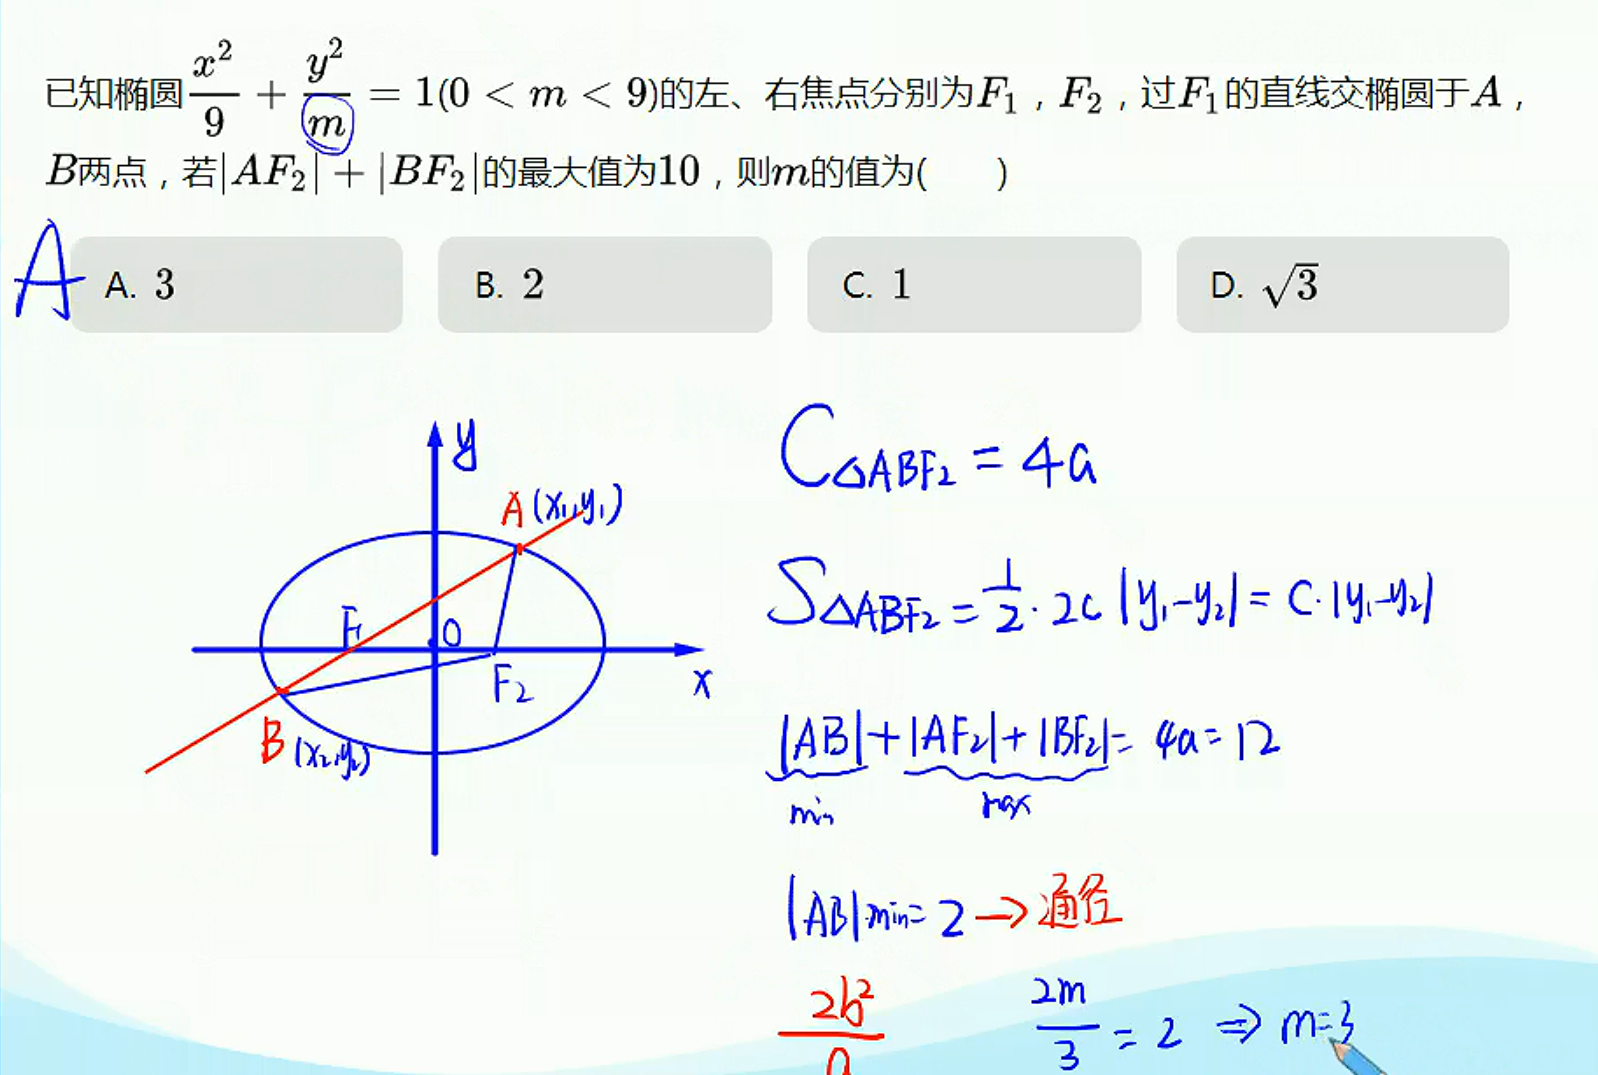 已知椭圆x²/9 + y²/m = 1(0 < m < 9)的左、右焦点分别为F₁，F₂，过F₁的直线交椭圆于A，
B两点，若|AF₂| + |BF₂|的最大值为10，则m的值为(　　)
A
A. 3
B. 2
C. 1
D. √3
y
A(x₁,y₁)
F₁
O
F₂
x
B(x₂,y₂)
C△ABF₂ = 4a
S△ABF₂ = 1/2 · 2c |y₁-y₂| = c·|y₁-y₂|
|AB| + |AF₂| + |BF₂| = 4a = 12
min
max
|AB|min = 2 → 通径
2b²/a
2m/3 = 2 ⇒ m=3